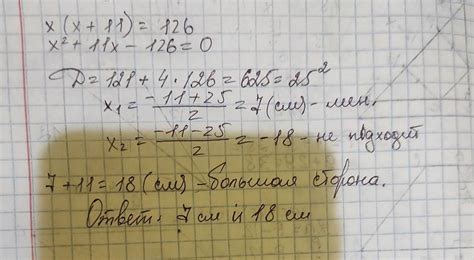 x(x+11) = 126
x² + 11x - 126 = 0
D = 121 + 4·126 = 625 = 25²
x₁ = (-11+25)/2 = 7(см) - мен.
x₂ = (-11-25)/2 = -18 - не подходит
7+11 = 18(см) - большая сторона.
Ответ: 7 см и 18 см